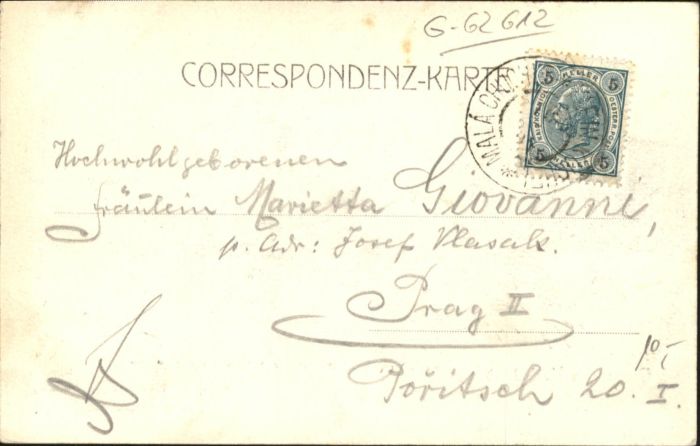 G-62612
CORRESPONDENZ-KARTE
5 HELLER 5
5 HELLER 5
MALÁ
Hochwohlgeborenen
Fräulein Marietta Giovanni,
p. Adr: Josef Vlasak.
Prag II
Pořitsch 20. I.
10,-